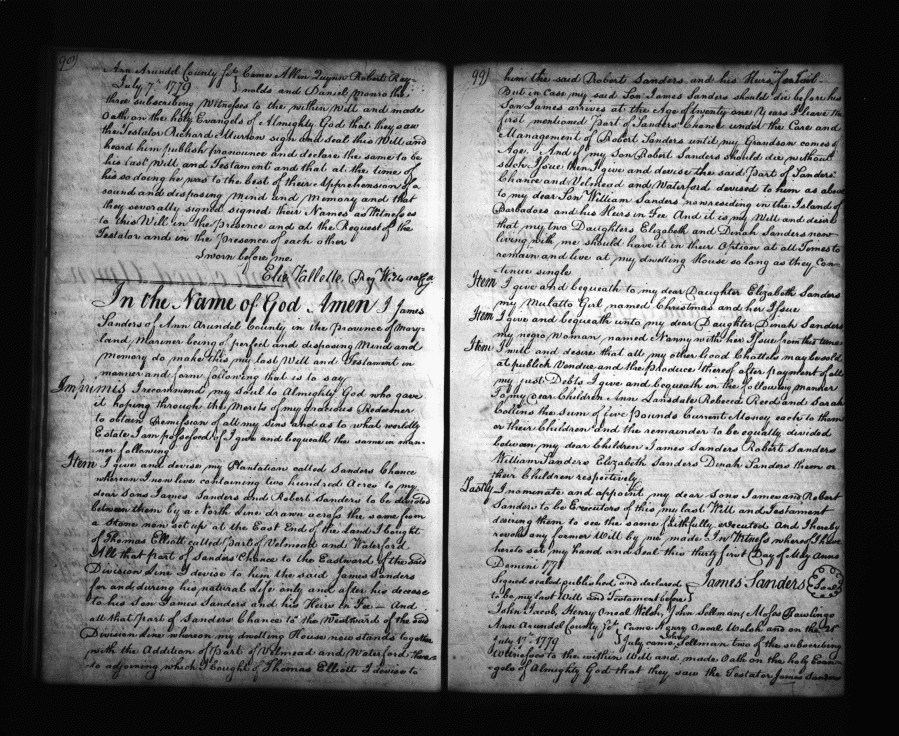 90)
Ann Arundel County Sct Came Allen Quynn Robert Rey-
July 7th 1779 } nolds and Daniel Monro the
three subscribing Witnesses to the within Will and made
Oath on the holy Evangels of Almighty God that they saw
the Testator Richard Murrow sign and Seal this Will and
heard him publish pronounce and declare the same to be
his last Will and Testament and that at the time of
his so doing he was to the best of their Apprehensions of a
sound and disposing Mind and Memory and that
they severally signed signed their Names as Witnesses
to this Will in the Presence and at the Request of the
Testator and in the Presence of each other
Sworn before me
Elie Vallette Reg Wills
In the Name of God Amen I James
Sanders of Ann Arundel County in the Province of Mary-
land, Mariner being of perfect and disposing Mind and
memory do make this my last Will and Testament in
manner and form following that is to say
Imprimis I recommend my Soul to Almighty God who gave
it hoping through the Merits of my Gracious Redeemer
to obtain Remission of all my Sins and as to what worldly
Estate I am possessed of I give and bequeath the same in man-
ner following
Item I give and devise my Plantation called Sanders Chance
whereon I now live containing two hundred Acres to my
dear Sons James Sanders and Robert Sanders to be divided
between them by a North Line drawn across the same from
a Stone now set up at the East End of the Land I bought
of Thomas Elliott called part of Velmead and Waterford
All that part of Sanders Chance to the Eastward of the said
Division Line I devise to him the said James Sanders
for and during his natural Life only and after his decease
to his Son James Sanders and his Heirs in Fee - And
all that part of Sanders Chance to the Westward of the said
Division Line whereon my dwelling House now stands together
with the Addition of part of Velmead and Waterford there-
to adjoining which I bought of Thomas Elliott I devise to
99)
him the said Robert Sanders and his Heirs in Fee Tail
But in Case my said Son James Sanders should die before his
Son James arrives at the Age of twenty one Years I leave the
first mentioned part of Sanders Chance under the Care and
Management of Robert Sanders until my Grandson comes of
Age. And if my Son Robert Sanders should die without
such Issue then I give and devise the said part of Sanders
Chance and Velmead and Waterford devised to him as above
to my dear Son William Sanders now residing in the Island of
Barbadoes and his Heirs in Fee And it is my Will and desire
that my two Daughters Elizabeth and Dinah Sanders now
living with me should have it in their Option at all Times to
remain and live at my dwelling House so long as they con-
tinue single
Item I give and bequeath to my dear Daughter Elizabeth Sanders
my Mulatto Girl named Christmas and her Issue
Item I give and bequeath unto my dear Daughter Dinah Sanders
my negro Woman named Nanny with her Issue from this time
Item I will and desire that all my other Good Chattels may be sold
at publick Vendue and the Produce thereof after payment of all
my just Debts I give and bequeath in the following manner
To my dear Children Ann Lansdale Rebecca Reed and Sarah
Collins the Sum of five Pounds Current Money each to them
or their Children and the remainder to be equally divided
between my dear Children James Sanders Robert Sanders
William Sanders Elizabeth Sanders Dinah Sanders them or
their Children respectively
Lastly I nominate and appoint my dear Sons James and Robert
Sanders to be Executors of this my last Will and Testament
desiring them to see the same faithfully executed And I hereby
revoke any former Will by me made In Witness whereof I have
hereto set my hand and Seal this thirty first Day of May Anno
Domini 177
Signed sealed published and declared } James Sanders Seal
to be my last Will and Testament before
John Jacob, Henry Oneal Welsh, John Sellman, Moses
Ann Arundel County Sct Came Henry Oneal Welsh and on the 21st
July 17th 1779 } July came Johnzy Sellman two of the subscribing
Witnesses to the within Will and made Oath on the holy Evan-
gels of Almighty God that they saw the Testator James Sanders